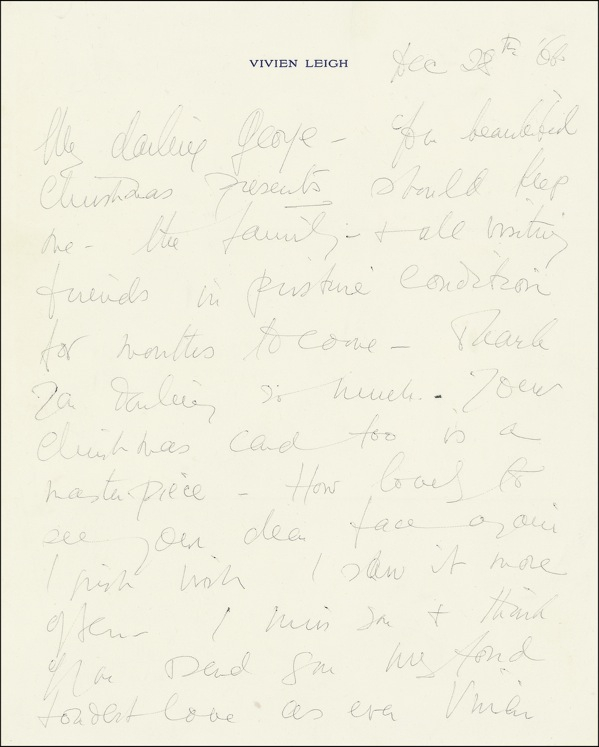 VIVIEN LEIGH
Dec 28th '66
My darling George - Your beautiful
Christmas presents should keep
me - the family - & all visiting
friends in pristine condition
for months to come - Thank
You darling so much. - Your
Christmas card too is a
masterpiece - How lovely to
see your dear face again
I just wish I saw it more
often - I miss you & think
of you & send you my fond
fondest love as ever Vivien